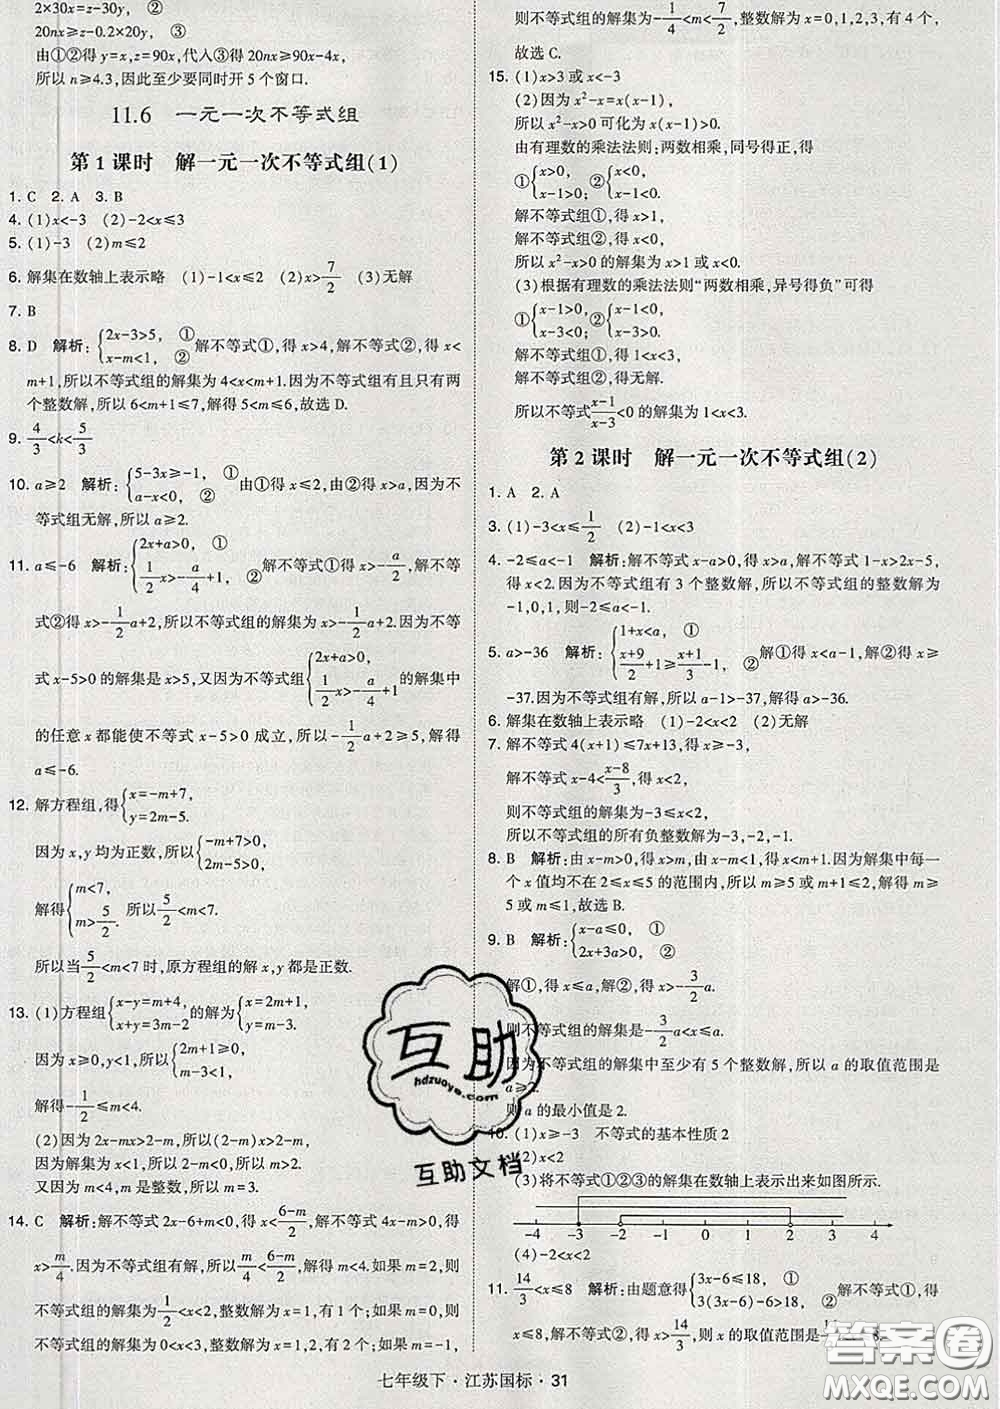 2×30x=z-30y, ②
20nx≥z-0.2×20y, ③
由①②得 y=x,z=90x,代入③得 20nx≥90x-4x,
所以 n≥4.3,因此至少要同时开 5 个窗口.
11.6 一元一次不等式组
第 1 课时 解一元一次不等式组(1)
1. C 2. A 3. B
4. (1)x<-3 (2)-2<x≤3
5. (1)-3 (2)m≤2
6. 解集在数轴上表示略 (1)-1<x≤2 (2)x>7/2 (3)无解
7. B
8. D 解析:{2x-3>5, ① x-m<1, ② 解不等式①,得 x>4,解不等式②,得 x<
m+1,所以不等式组的解集为 4<x<m+1.因为不等式组有且只有两
个整数解,所以 6<m+1≤7,解得 5<m≤6,故选 D.
9. 4/3<k<5/3
10. a≥2 解析:{5-3x≥-1, ① a-x<0, ② 由①得 x≤2,由②得 x>a,因为不
等式组无解,所以 a≥2.
11. a≤-6 解析:{2x+a>0, ① 1/2x>-a/4+1, ② 解不等式①得 x>-a/2,解不等
式②得 x>-1/2a+2,所以不等式组的解集为 x>-1/2a+2.因为不等
式 x-5>0 的解集是 x>5,又因为不等式组{2x+a>0, 1/2x>-a/4+1 的解集中
的任意 x 都能使不等式 x-5>0 成立,所以-1/2a+2≥5,解得
a≤-6.
12. 解方程组,得{x=-m+7, y=2m-5.
因为 x,y 均为正数,所以{-m+7>0, 2m-5>0,
解得{m<7, m>5/2. 所以5/2<m<7.
所以当5/2<m<7 时,原方程组的解 x,y 都是正数.
13. (1)方程组{x-y=m+4, x+y=3m-2 的解为{x=2m+1, y=m-3.
因为 x≥0,y<0,所以{2m+1≥0, m-3<1,
解得-1/2≤m<4.
(2)因为 2x-mx>2-m,所以(2-m)x>2-m,
因为解集为 x<1,所以 2-m<0,所以 m>2.
又因为 m<4,m 是整数,所以 m=3.
14. C 解析:解不等式 2x-6+m<0,得 x<(6-m)/2,解不等式 4x-m>0,得
x>m/4.因为不等式组有解,所以m/4<(6-m)/2,解得 m<4.如果 m=2,则
不等式组的解集为1/2<x<2,整数解为 x=1,有 1 个;如果 m=0,则
不等式组的解集为 0<x<3,整数解为 x=1,2,有 2 个;如果 m=-1,
则不等式组的解集为-1/4<m<7/2,整数解为 x=0,1,2,3,有 4 个,
故选 C.
15. (1)x>3 或 x<-3
(2)因为 x²-x=x(x-1),
所以 x²-x>0 可化为 x(x-1)>0.
由有理数的乘法法则:两数相乘,同号得正,得
①{x>0, x-1>0; ②{x<0, x-1<0.
解不等式组①,得 x>1,
解不等式组②,得 x<0.
所以 x²-x>0 的解集为 x>1 或 x<0.
(3)根据有理数的乘法法则“两数相乘,异号得负”可得
①{x-1>0, x-3<0; ②{x-1<0, x-3>0.
解不等式组①,得 1<x<3.
解不等式组②,得无解.
所以不等式(x-1)/(x-3)<0 的解集为 1<x<3.
第 2 课时 解一元一次不等式组(2)
1. A 2. A
3. (1)-3<x≤1/2 (2)-1<x<3
4. -2≤a<-1 解析:解不等式 x-a>0,得 x>a,解不等式 1-x>2x-5,
得 x<2.因为不等式组有 3 个整数解,所以不等式组的整数解为
-1,0,1,则-2≤a<-1.
5. a>-36 解析:{1+x<a, ① (x+9)/2+1≥(x+1)/3-1, ② 解①得 x<a-1,解②得 x≥
-37.因为不等式组有解,所以 a-1>-37,解得 a>-36.
6. 解集在数轴上表示略 (1)-2<x<2 (2)无解
7. 解不等式 4(x+1)≤7x+13,得 x≥-3,
解不等式 x-4<(x-8)/3,得 x<2,
则不等式组的解集为-3≤x<2,
所以不等式组的所有负整数解为-3,-2,-1.
8. B 解析:由 x-m>0,得 x>m,由 x-m<1,得 x<m+1.因为解集中每一
个 x 值均不在 2≤x≤5 的范围内,所以 m≥5 或 m+1≤2,解得 m≥
5 或 m≤1,故选 B.
9. B 解析:{x-a≤0, ① 2x+3a>0, ②
解①,得 x≤a,解②,得 x>-3/2a.
则不等式组的解集是-3/2a<x≤a.
因为不等式组的解集中至少有 5 个整数解,所以 a 的取值范围是
a≥2.
所以 a 的最小值是 2.
10. (1)x≥-3 不等式的基本性质 2
(2)x<2
(3)将不等式①②③的解集在数轴上表示出来如图所示.
-4 -3 -2 -1 0 1 2 3 4
(4)-2<x<2
11. 14/3<x≤8 解析:由题意得{3x-6≤18, ① 3(3x-6)-6>18, ② 解不等式①,得
x≤8,解不等式②,得 x>14/3,则 x 的取值范围是14/3<x≤8.
七年级下·江苏国标·31
互助
hdzuoye.com
互助文档
答案圈
MXQE.COM